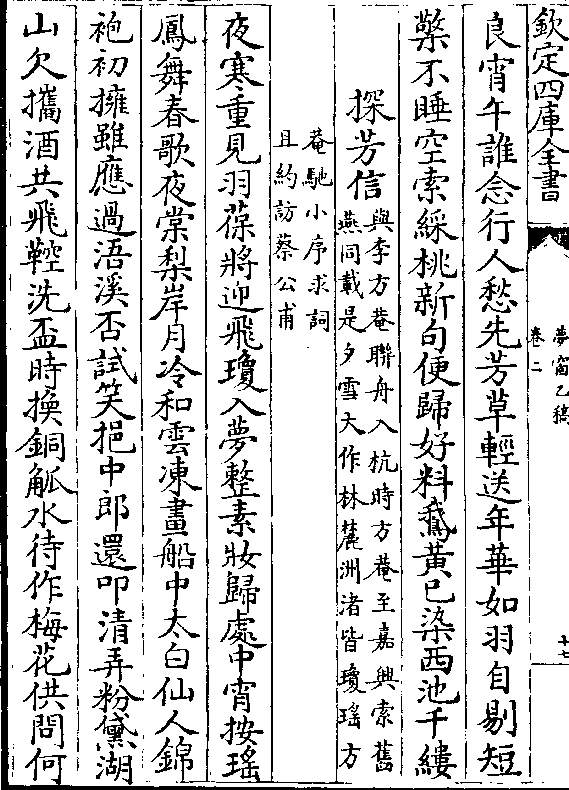 欽定四庫全書
夢窗乙稿
卷二
十七
良宵午誰念行人愁先芳草輕送年華如羽自剔短
檠不睡空索綵桃新句便歸好料鵞黄已染西池千縷
探芳信
與李方菴聯舟入杭時方菴至嘉興索舊
燕同載是夕雪大作林麓洲渚皆瓊瑤方
菴馳小序求詞
且約訪蔡公甫
夜寒重見羽葆將迎飛瓊入夢整素妝歸處中宵按瑤
鳳舞春歌夜棠梨岸月冷和雲凍畫船中太白仙人錦
袍初擁雖應過浯溪否試笑挹中郎還叩清弄粉黛湖
山欠攜酒共飛鞚洗盃時換銅觚水待作梅花供問何